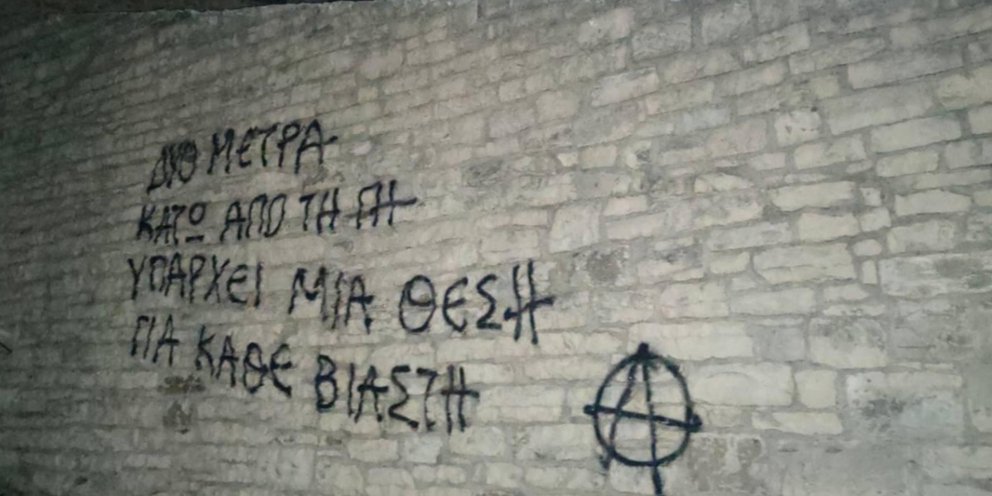 ΔΥΟ ΜΕΤΡΑ
ΚΑΤΩ ΑΠΟ ΤΗ ΓΗ
ΥΠΑΡΧΕΙ ΜΙΑ ΘΕΣΗ
ΓΙΑ ΚΑΘΕ ΒΙΑΣΤΗ